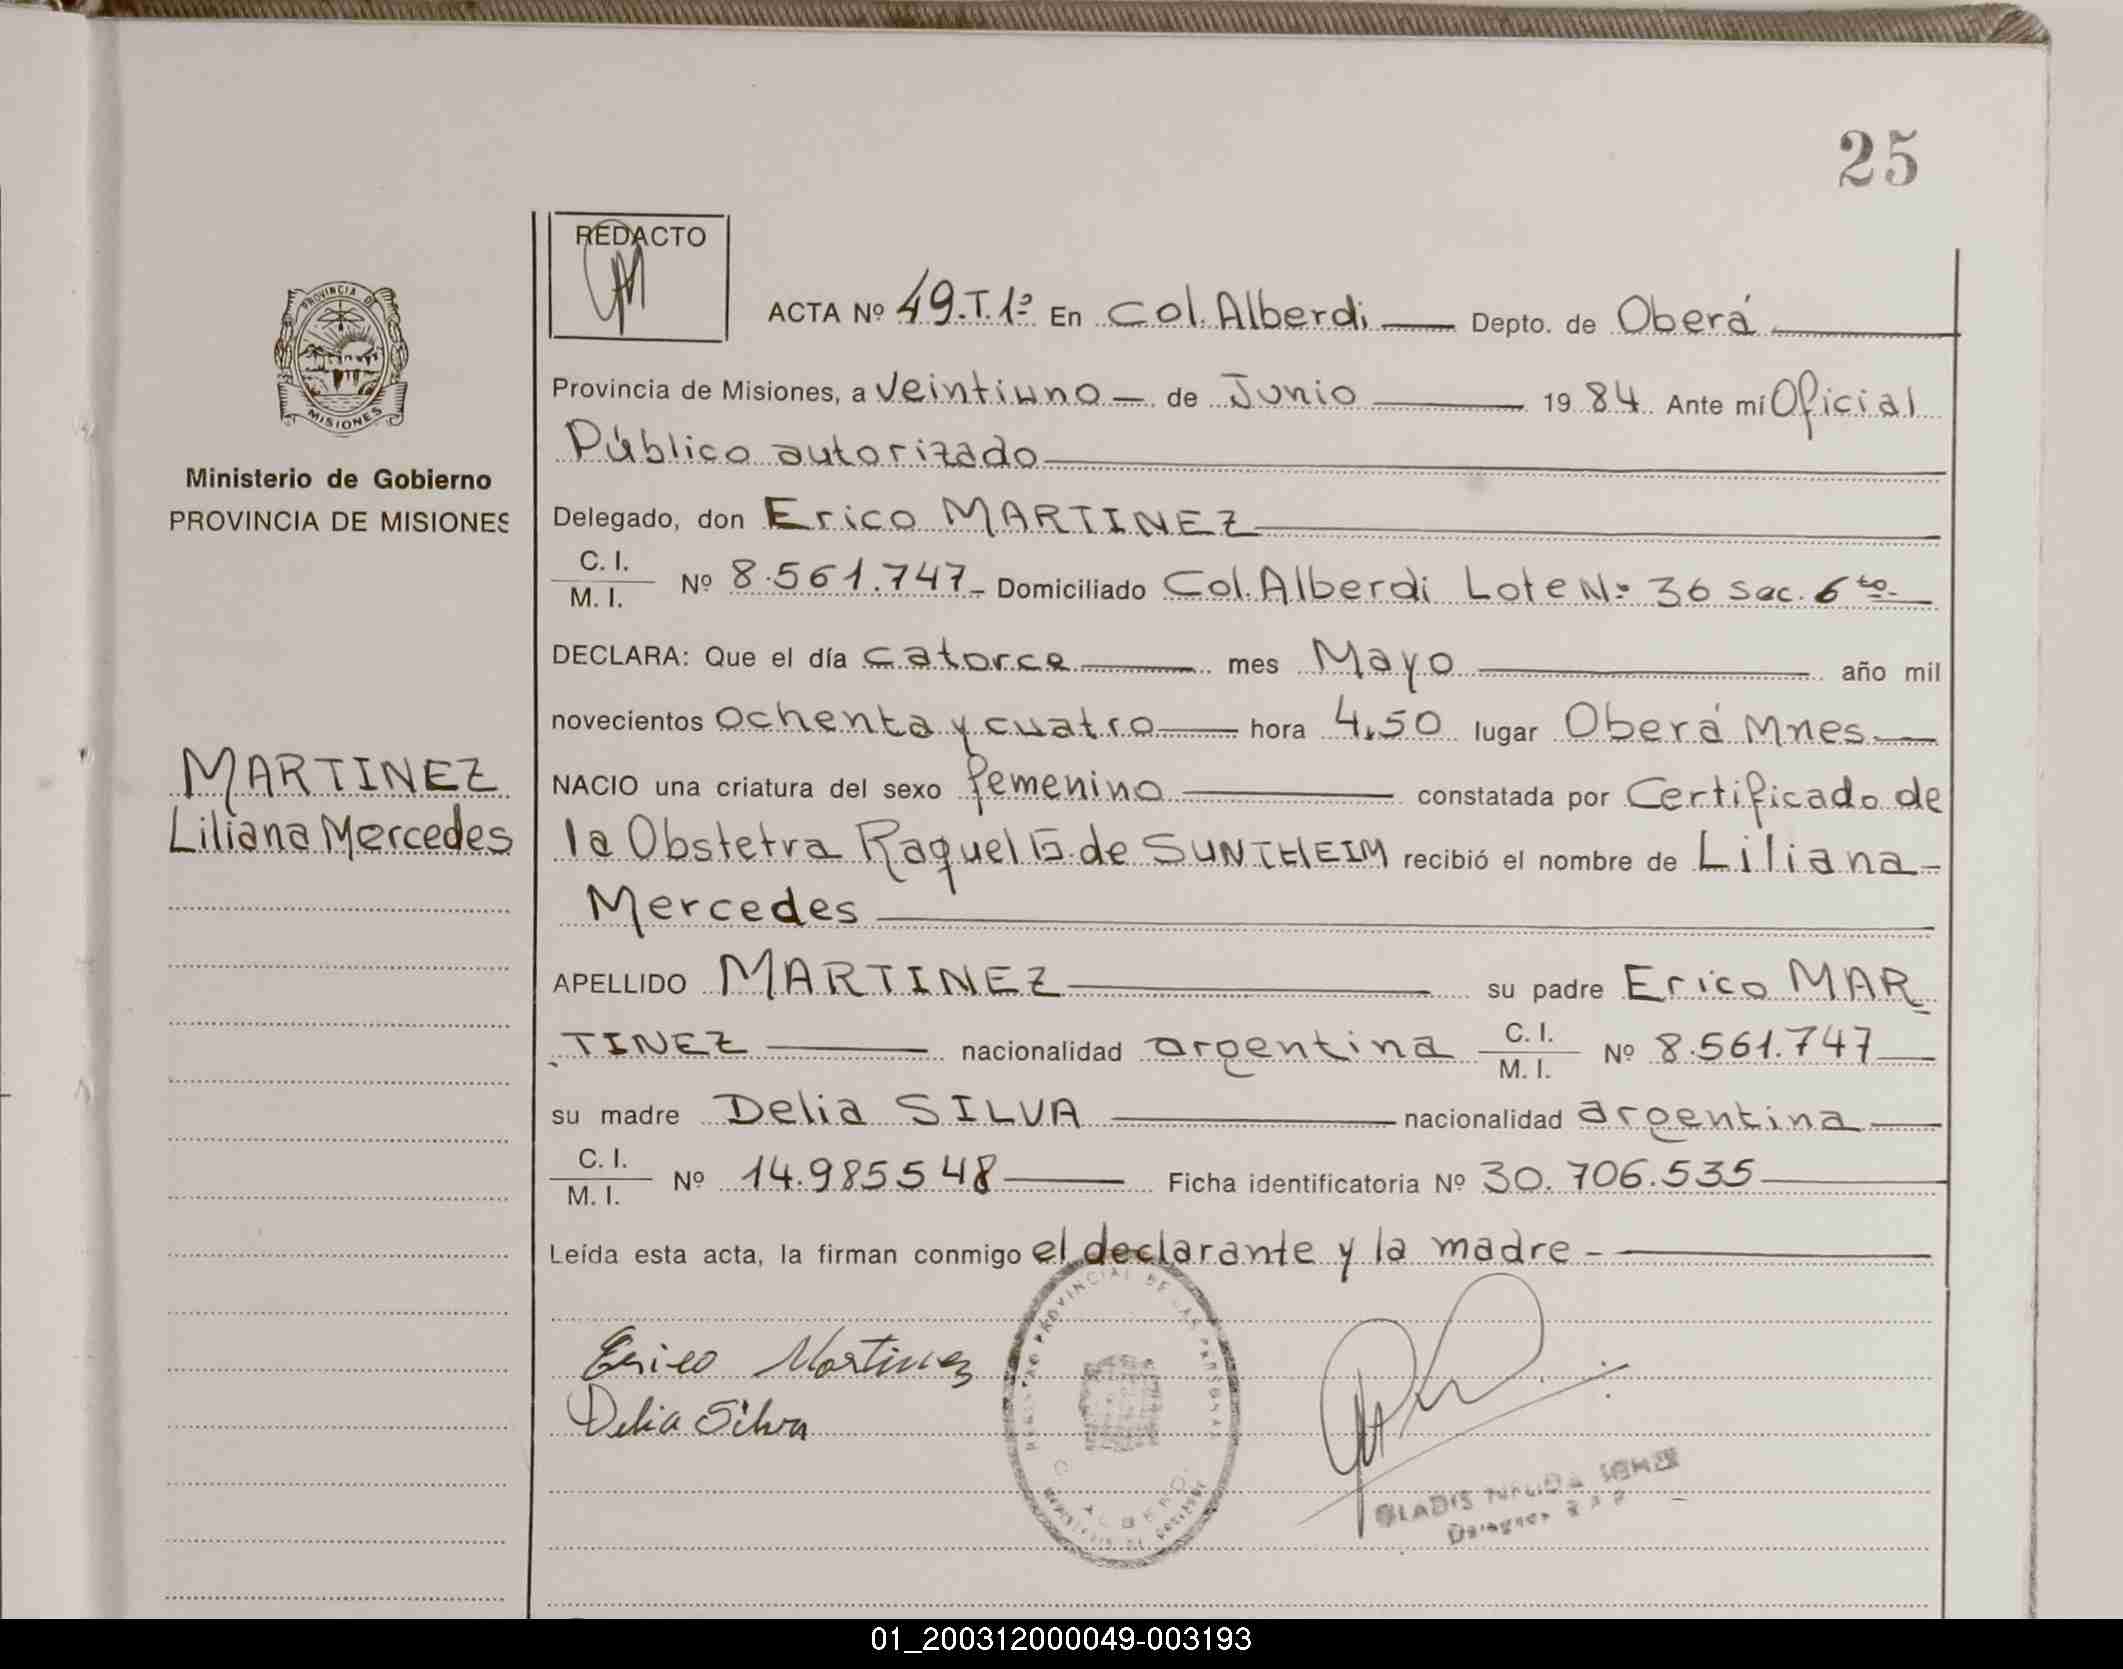 25
REDACTO
ACTA Nº 49.T.1º En Col. Alberdi Depto. de Oberá
Provincia de Misiones, a veintiuno de Junio 1984 Ante mí Oficial
Público autorizado
Ministerio de Gobierno
PROVINCIA DE MISIONES
Delegado, don Erico MARTINEZ
C. I.
M. I. Nº 8.561.747 Domiciliado Col. Alberdi Lote Nº 36 sec. 6to.
DECLARA: Que el día catorce mes Mayo año mil
novecientos ochenta y cuatro hora 4,50 lugar Oberá Mnes.
MARTINEZ
Liliana Mercedes
NACIO una criatura del sexo femenino constatada por Certificado de
la Obstetra Raquel G. de SUNTHEIM recibió el nombre de Liliana
Mercedes
APELLIDO MARTINEZ su padre Erico MAR
TINEZ nacionalidad argentina C. I.
M. I. Nº 8.561.747
su madre Delia SILVA nacionalidad argentina
C. I.
M. I. Nº 14.985548 Ficha identificatoria Nº 30.706.535
Leída esta acta, la firman conmigo el declarante y la madre -
PROVINCIA DE
MISIONES
REGISTRO PROVINCIAL DE LAS PERSONAS
Erico Martinez
Delia Silva
GLADIS
01_200312000049-003193